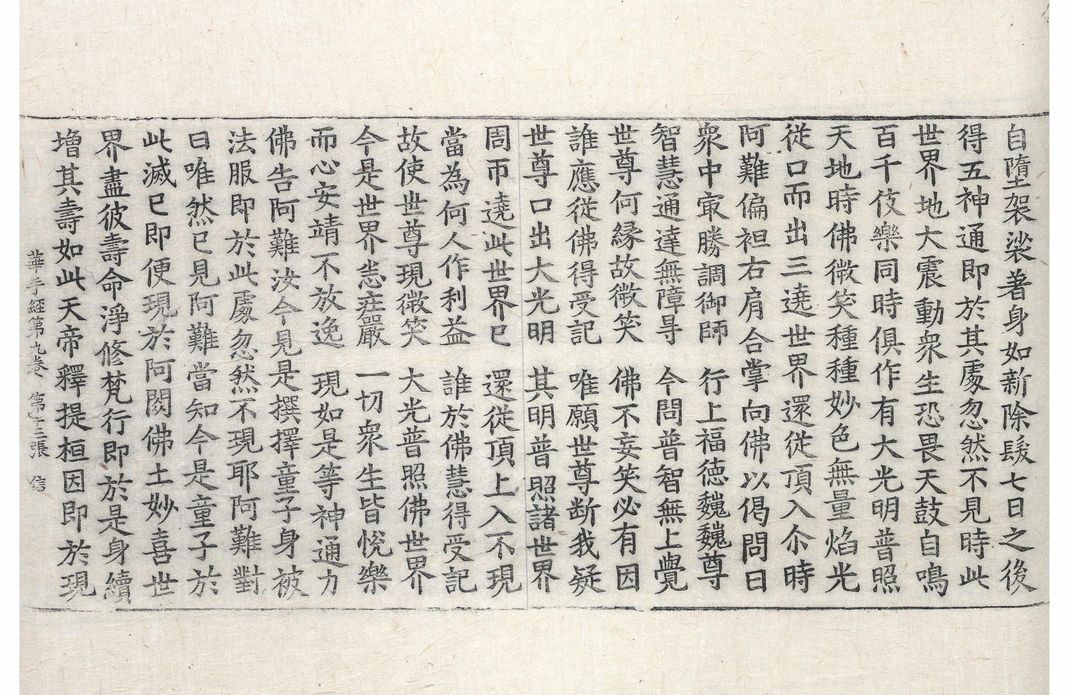 自墮袈裟著身如新除髮七日之後
得五神通即於其處忽然不見時此
世界地大震動衆生恐畏天鼓自鳴
百千伎樂同時俱作有大光明普照
天地時佛微笑種種妙色無量焰光
從口而出三遶世界還從頂入尒時
阿難偏袒右肩合掌向佛以偈問曰
衆中㝡勝調御師 行上福德巍巍尊
智慧通達無障㝵 今問普智無上覺
世尊何緣故微笑 佛不妄笑必有因
誰應從佛得受記 唯願世尊断我疑
世尊口出大光明 其明普照諸世界
周帀遶此世界已 還從頂上入不現
當為何人作利益 誰於佛慧得受記
故使世尊現微笑 大光普照佛世界
今是世界悉莊嚴 一切衆生皆悅樂
而心安靖不放逸 現如是等神通力
佛告阿難汝今見是撰擇童子身被
法服即於此處忽然不現耶阿難對
曰唯然已見阿難當知今是童子於
此滅已即便現於阿閦佛土妙喜世
界盡彼壽命淨修梵行即於是身續
增其壽如此天帝釋提桓因即於現
華手經第九卷 第十二張 信